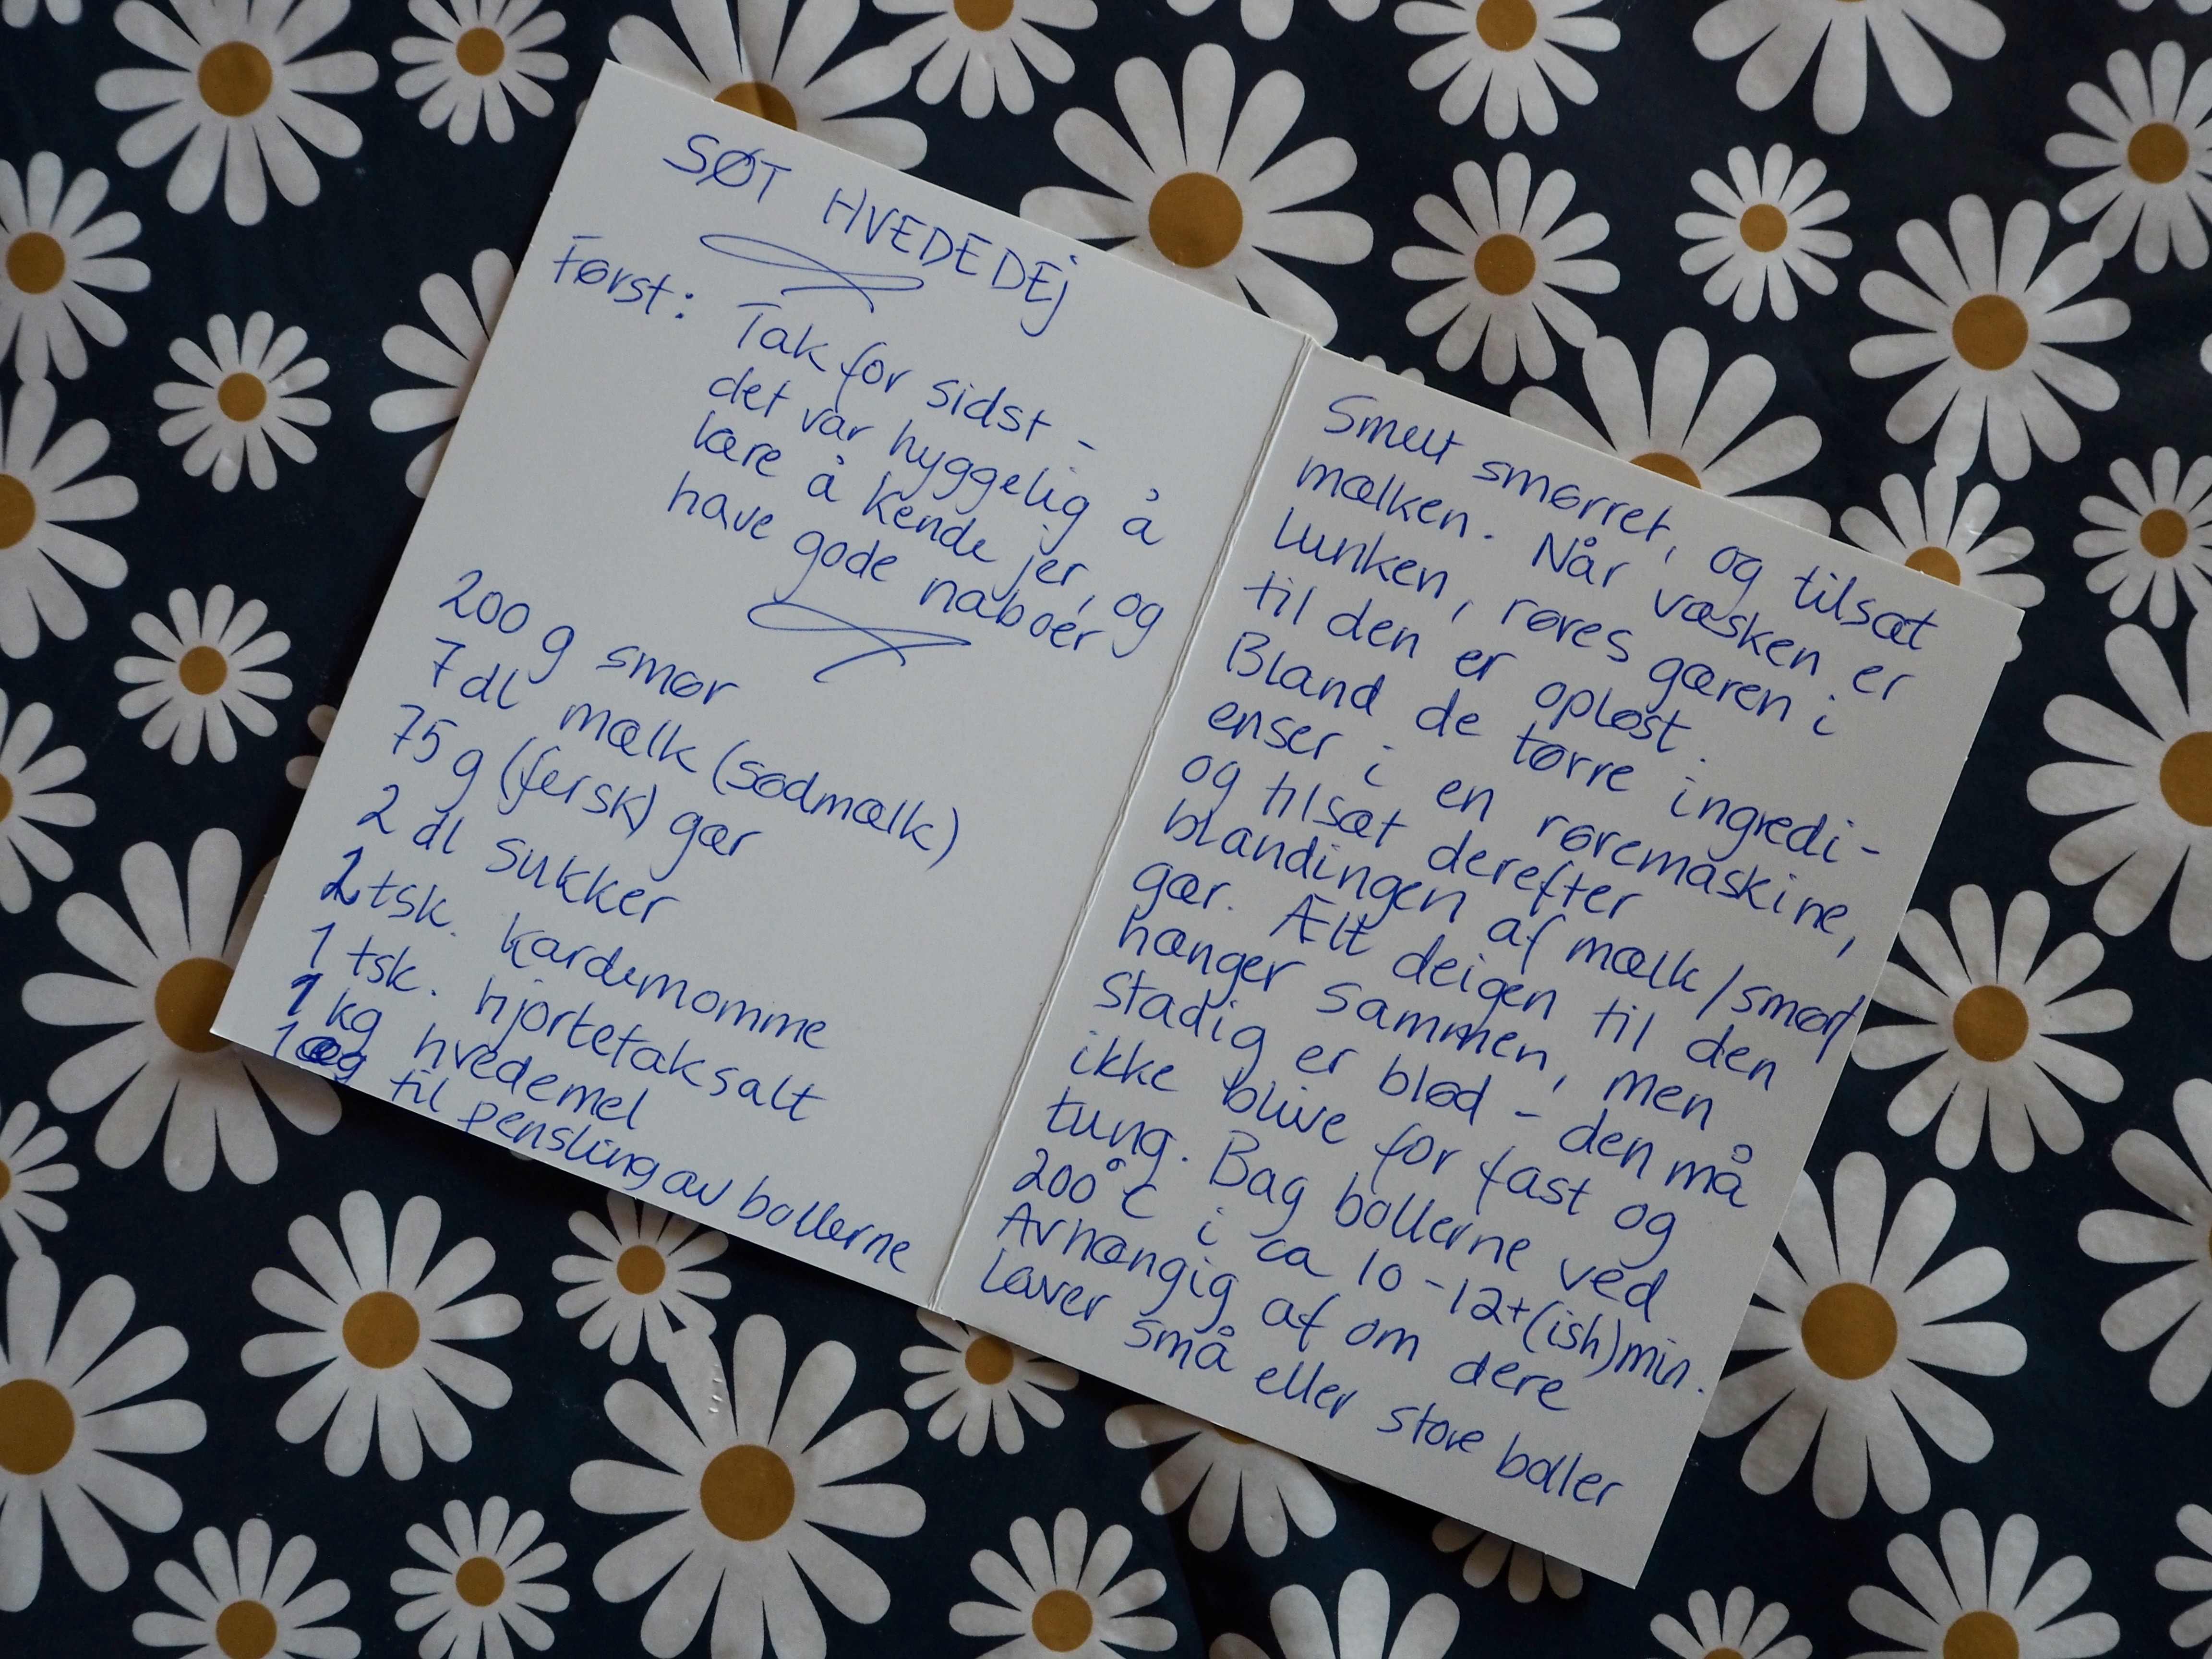 SØT HVEDEDEj
Først: Tak for sidst -
det var hyggelig å
lære å kende jer, og
have gode naboer
200 g smør
7 dl mælk (sødmælk)
75 g (fersk) gær
2 dl sukker
tsk. kardemomme
1 tsk. hjortetaksalt
1 kg hvedemel
1 æg til pensling av bollerne
Smelt smørret, og tilsæt
mælken. Når væsken er
lunken, røres gæren i
til den er opløst.
Bland de tørre ingredi-
enser i en røremaskine,
og tilsæt derefter
blandingen af mælk/smør/
gær. Ælt deigen til den
hænger sammen, men
stadig er blød - den må
ikke blive for fast og
tung. Bag bollerne ved
200°C i ca 10-12+(ish)min.
Avhængig af om dere
laver små eller store boller